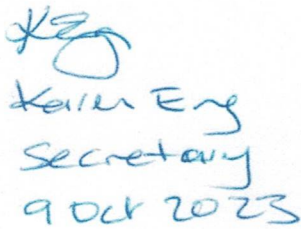 KEng
Karen Eng
Secretary
9 Oct 2023